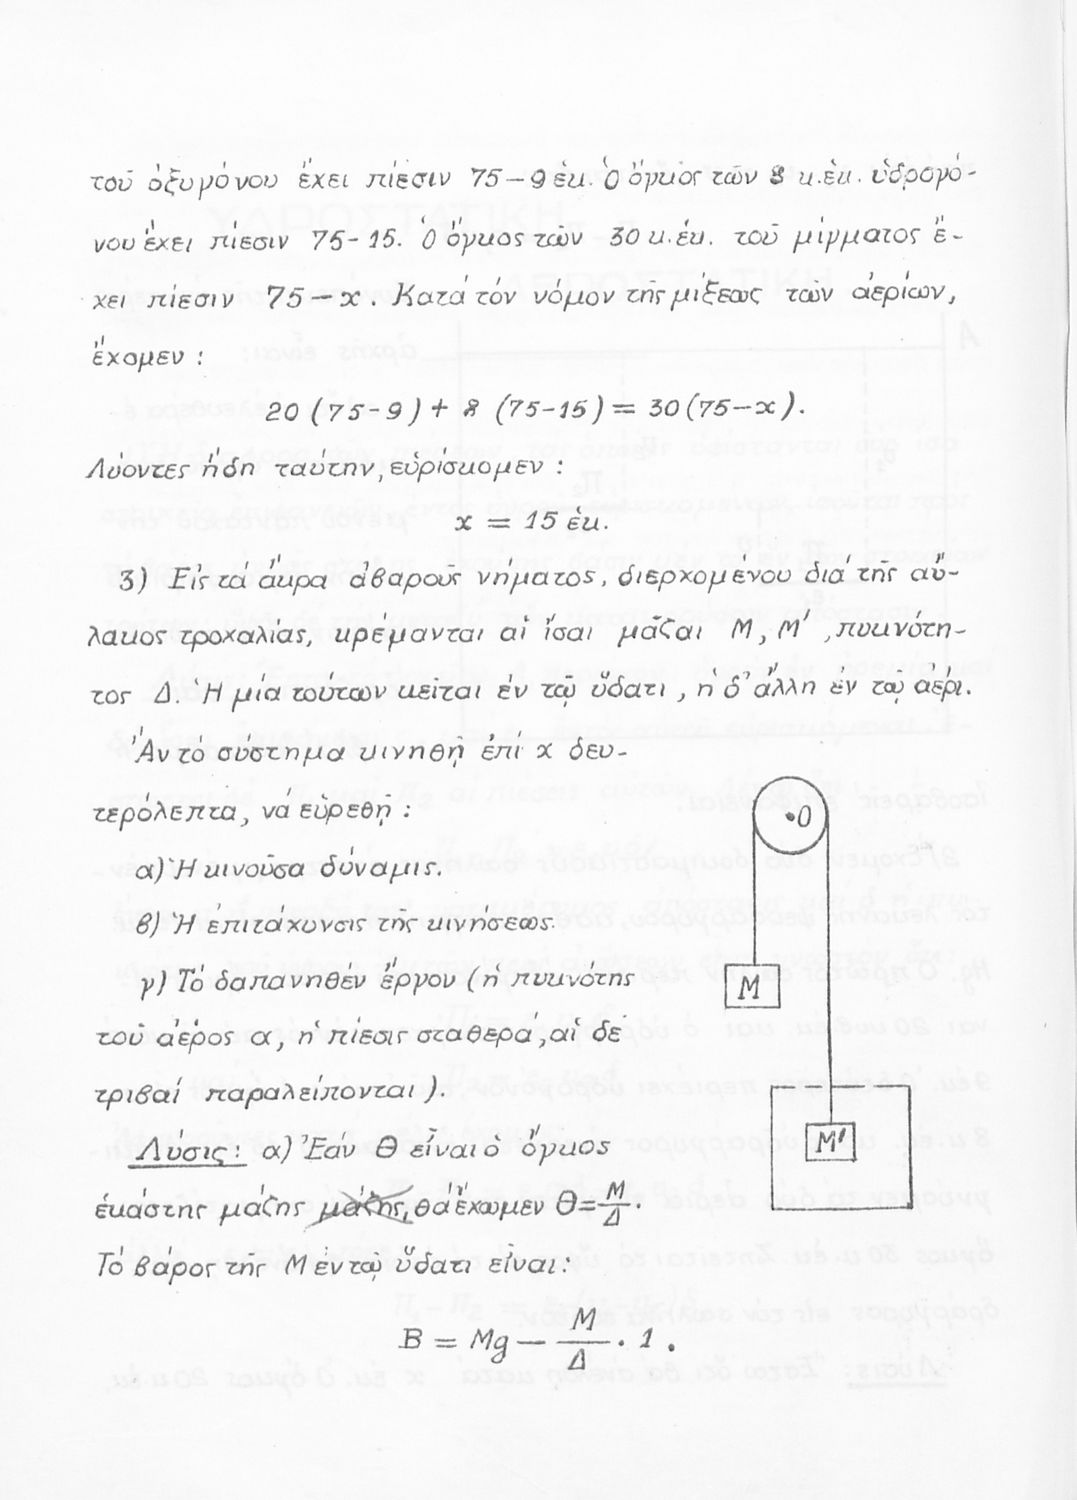 τοῦ ὀξυγόνου ἔχει πίεσιν 75-9 ἑκ. Ὁ ὄγκος τῶν 8 κ.ἑκ. ὑδρογό-
νου ἔχει πίεσιν 75-15. Ὁ ὄγκος τῶν 30 κ.ἑκ. τοῦ μίγματος ἔ-
χει πίεσιν 75-x. Κατά τόν νόμον τῆς μίξεως τῶν ἀερίων,
ἔχομεν :
20 (75-9) + 8 (75-15) = 30 (75-x).
Λύοντες ἤδη ταύτην, εὑρίσκομεν :
x = 15 ἑκ.
3) Εἰς τά ἄκρα ἀβαροῦς νήματος, διερχομένου διά τῆς αὔ-
λακος τροχαλίας, κρέμανται αἱ ἴσαι μᾶζαι Μ, Μ', πυκνότη-
τος Δ. Ἡ μία τούτων κεῖται ἐν τῷ ὕδατι, ἡ δ' ἄλλη ἐν τῷ ἀέρι.
Ἄν τό σύστημα κινηθῇ ἐπί x δευ-
τερόλεπτα, νά εὑρεθῇ :
α) Ἡ κινοῦσα δύναμις.
β) Ἡ ἐπιτάχυνσις τῆς κινήσεως.
γ) Τό δαπανηθέν ἔργον (ἡ πυκνότης
τοῦ ἀέρος α, ἡ πίεσις σταθερά, αἱ δέ
τριβαί παραλείπονται).
Ο
Μ
Μ'
Λύσις: α) Ἐάν Θ εἶναι ὁ ὄγκος
ἑκάστης μάζης μάζης, θά ἔχωμεν Θ = Μ/Δ.
Τό βάρος τῆς Μ ἐν τῷ ὕδατι εἶναι:
Β = Mg - Μ/Δ · 1.